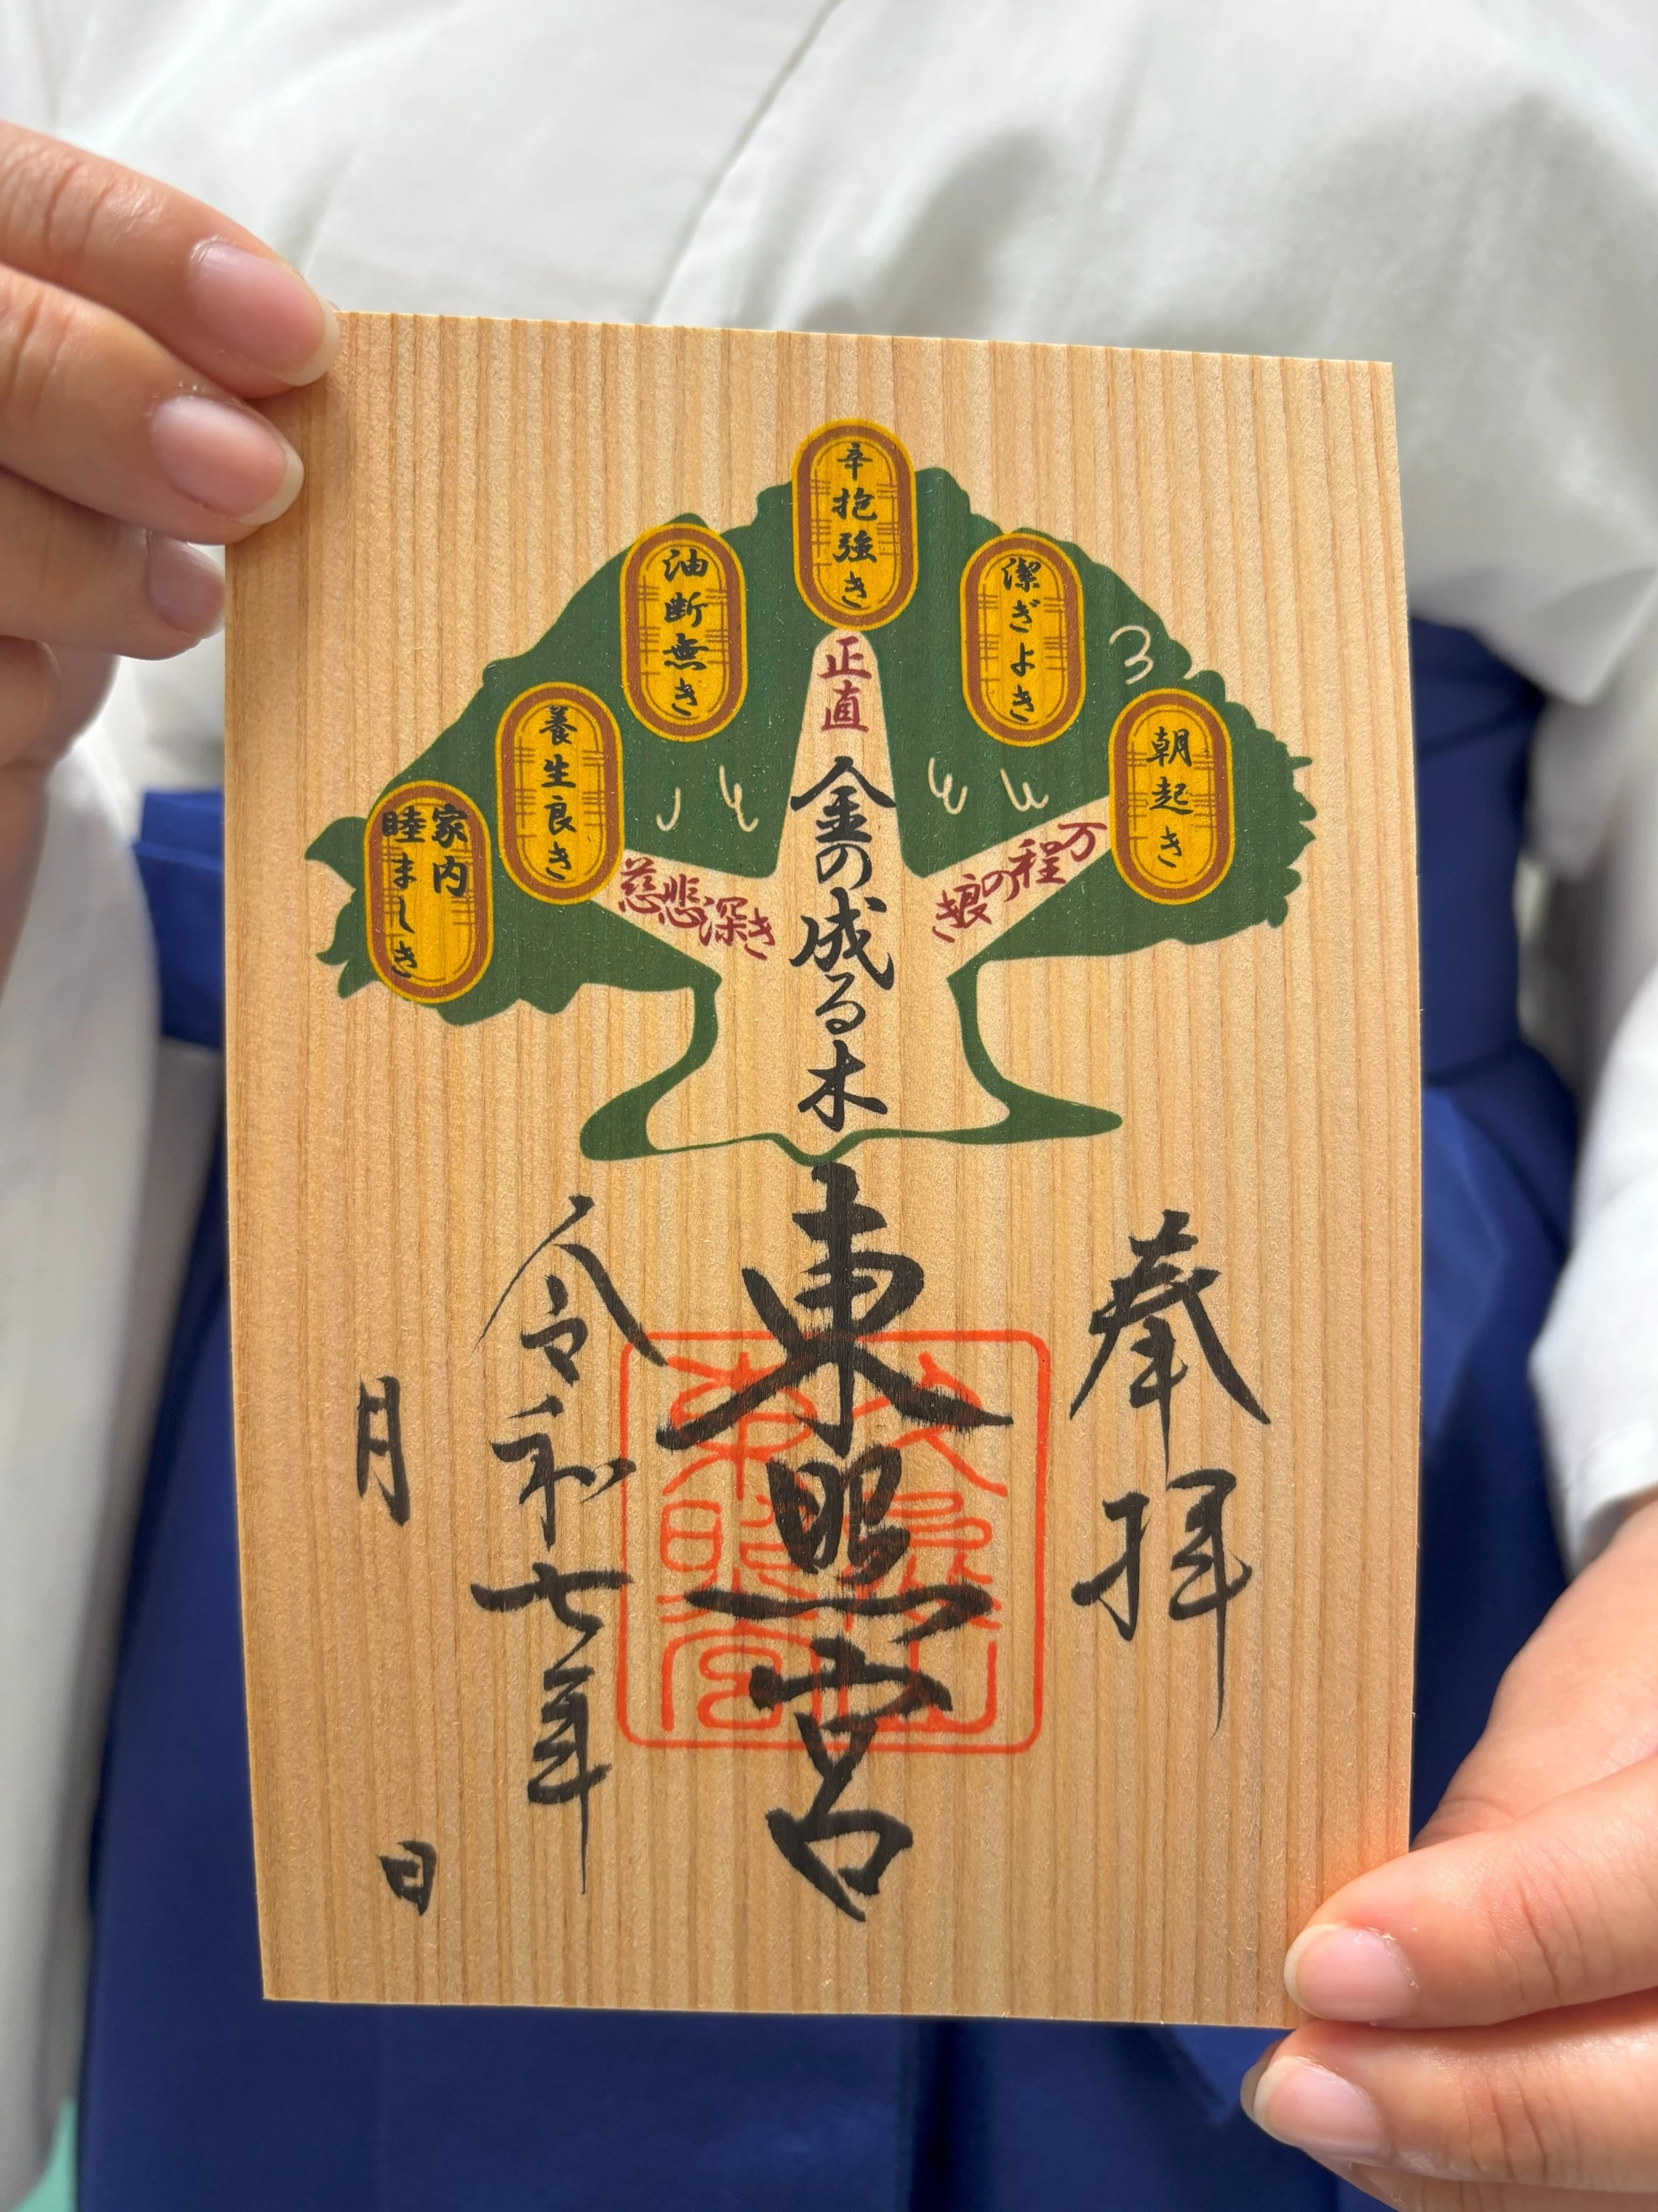 朝起き
潔ぎよき
辛抱強き
油断無き
養生良き
家内
睦ましき
万程の狼き
正直
慈悲深き
金の成る木
奉拝
東照宮
久能山
東照宮
令和七年
月
日